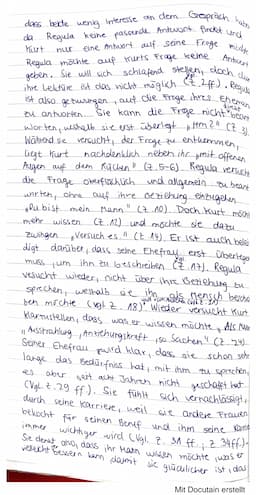 dass beide wenig Interesse an dem Gespräch haben,
da Regula keine passende Antwort findet und
Kurt nur eine Antwort auf seine Frage möchte.
Regula möchte auf Kurts Frage keine Antwort
geben. Sie will sich schlafend stellen, doch die
ihre Lektüre ist das nicht möglich (Z. 2ff.). Regula
ist also gezwungen, auf die Frage ihres Ehemann
zu antworten. Sie kann die Frage nicht beant
worten, weshalb sie erst überlegt „Hm?“ (Z. 3).
Während sie versucht, der Frage zu entkommen,
liegt Kurt nachdenklich neben ihr „mit offenen
Augen auf dem Rücken“ (Z. 5-6). Regula versucht
die Frage oberflächlich und allgemein zu beant
worten, ohne auf ihre Beziehung einzugehen
„Du bist mein Mann“ (Z. 10). Doch Kurt möchte
mehr wissen (Z. 12) und möchte sie dazu
zwingen „Versuch es.“ (Z. 14). Er ist auch belei
digt darüber, dass seine Ehefrau erst überlegen
muss, um ihn zu beschreiben (Z. 17). Regula
versucht wieder, nicht über ihre Beziehung zu
sprechen, weshalb sie ihn als Mensch beschrei
ben möchte (vgl. Z. 18). Wieder versucht Kurt
klarzustellen, dass, was er wissen möchte, als Mann
„Ausstrahlung, Anziehungskraft, so Sachen“ (Z. 24).
Seiner Ehefrau wird klar, dass sie schon sehr
lange das Bedürfnis hat, mit ihm zu sprechen,
es aber seit acht Jahren nicht geschafft hat
(Vgl. Z. 29 ff.). Sie fühlt sich vernachlässigt,
durch seine Karriere, weil sie andere Frauen
bekocht für seinen Beruf und ihm seine Karriere
immer wichtiger wird (Vgl. Z. 31 ff., Z. 34ff.).
Sie denkt also, dass ihr Mann wissen möchte, was er
vielleicht bessern kann, damit sie glücklicher ist, das
Mit Docutain erstellt